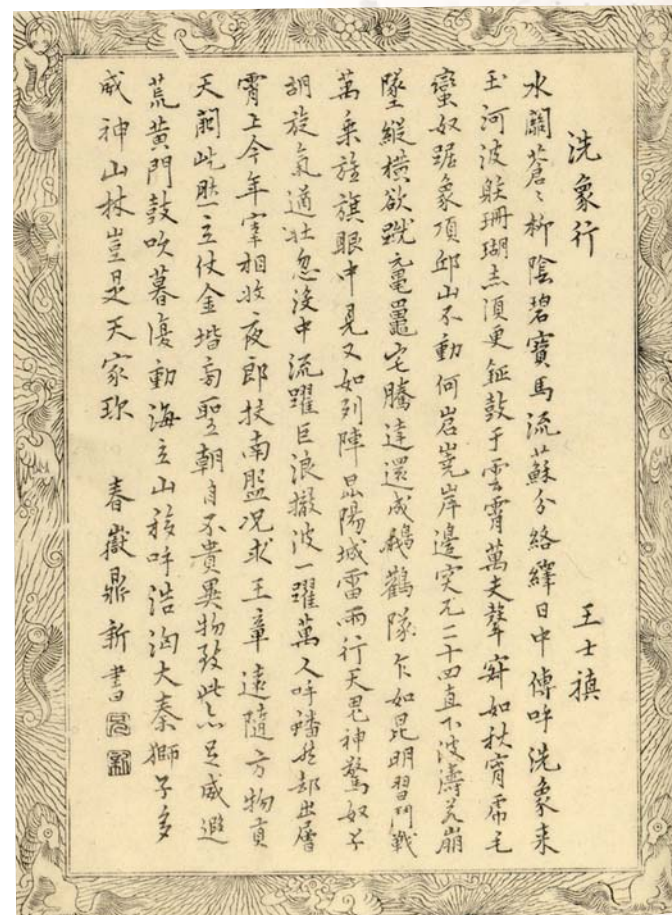 洗象行
王士禛
水關蒼〻柳陰碧寶馬流蘇分絡繹日中傳呼洗象来
玉河波㒓珊瑚赤須更鉦鼓于雲霄萬夫聲寂如秋宵虎毛
蠻奴踞象項邱山不動何岧嶤岸邊突兀二十四直下波濤若崩
墜縱橫欲蹴黿鼉宅騰達還成鵝鸛隊乍如昆明習鬥戰
萬乗旌旗眼中見又如列陣昆陽城雷雨行天鬼神驚奴子
胡旋氣遒壯忽没中流躍巨浪撇波一躍萬人呼蹣然却出層
霄上今年宰相收夜郎扶南盤况求王章遠隨方物貢
天闕此獸立仗金堦高聖朝自不貴異物致此亦足威遐
荒黄門鼓吹暮復動海立山移呼浩洶大秦獅子多
威神山林豈是天家珍
春嶽鼎新書